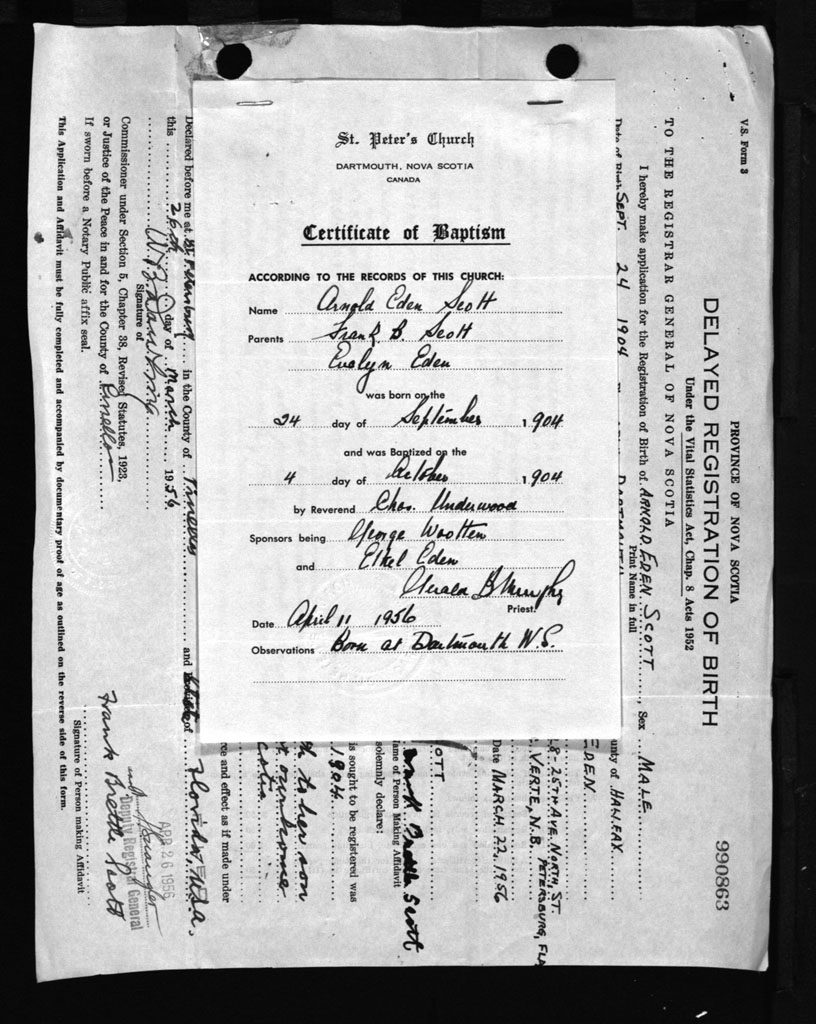 St. Peter's Church
DARTMOUTH, NOVA SCOTIA
CANADA
Certificate of Baptism
ACCORDING TO THE RECORDS OF THIS CHURCH:
Name Arnold Eden Scott
Parents Frank B. Scott
Evelyn Eden
was born on the
24 day of September 1904
and was Baptized on the
4 day of October 1904
by Reverend Chas. Underwood
Sponsors being George Wootten
and Ethel Eden
Gerald B Murphy
Priest.
Date April 11 1956
Observations Born at Dartmouth N.S.
V.S. Form 3
990863
PROVINCE OF NOVA SCOTIA
DELAYED REGISTRATION OF BIRTH
Under the Vital Statistics Act, Chap. 8 Acts 1952
TO THE REGISTRAR GENERAL OF NOVA SCOTIA
I hereby make application for the Registration of Birth of ARNOLD EDEN SCOTT, Sex MALE
Print Name in full
Date of Birth SEPT. 24 1904 DARTMOUTH unty of HALIFAX
EDEN
8-25TH AVE. NORTH, ST. PETERSBURG, FLA
VERTE, N.B.
Date MARCH 22, 1956
OTT
ame of Person Making Affidavit
solemnly declare:
is sought to be registered was
1904
th to her son
t our home
cotia
rce and effect as if made under
Declared before me at St. Petersburg in the County of Pinellas and State of Florida, U.S.A.
this 26th day of March 1956
Signature of
Commissioner under Section 5, Chapter 38, Revised Statutes, 1923,
or Justice of the Peace in and for the County of Pinellas
If sworn before a Notary Public affix seal.
APR 26 1956
Deputy Registrar General
Frank Brette Scott
Signature of Person making Affidavit
This Application and Affidavit must be fully completed and accompanied by documentary proof of age as outlined on the reverse side of this form.